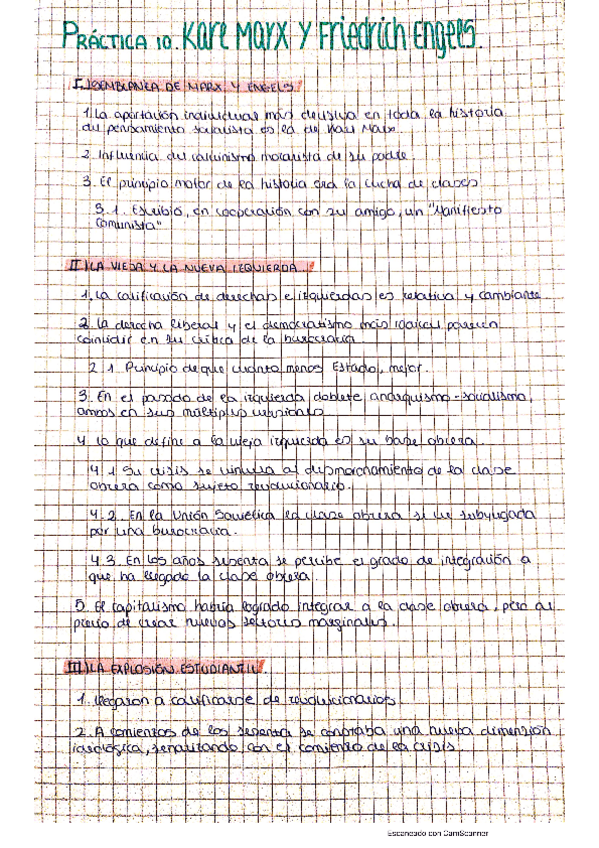 PRÁCTICA 10. Karl Marx Y Friedrich Engels.
I.) SEMBLANZA DE MARX Y ENGELS
1. La aportación individual más decisiva en toda la historia
del pensamiento socialista es la de Karl Marx
2. Influencia del calvinismo moralista de su padre.
3. El principio motor de la historia era la lucha de clases
3.1. Escribió, en cooperación con su amigo, un "Manifiesto
Comunista"
II) LA VIEJA Y LA NUEVA IZQUIERDA.
1. La calificación de derechas e izquierdas es relativa y cambiante
2. La derecha liberal y el democratismo más radical parecen
coincidir en su crítica de la burocracia.
2.1. Principio de que cuanto menos Estado, mejor.
3. En el pasado de la izquierda doblete anarquismo-socialismo,
ambos en sus múltiples versiones
4. Lo que define a la vieja izquierda es su base obrera.
4.1 Su crisis se vincula al desmoronamiento de la clase
obrera como sujeto revolucionario.
4.2. En la Unión Soviética la clase obrera se ve subyugada
por una burocracia.
4.3. En los años sesenta se percibe el grado de integración a
que ha llegado la clase obrera.
5. El capitalismo habría logrado integrar a la clase obrera, pero al
precio de crear nuevos sectores marginales.
III) LA EXPLOSIÓN ESTUDIANTIL.
1. Llegaron a calificarse de revolucionarios.
2. A comienzos de los sesenta se constaba una nueva dimensión
ideológica, finalizando con el comienzo de la crisis
Escaneado con CamScanner